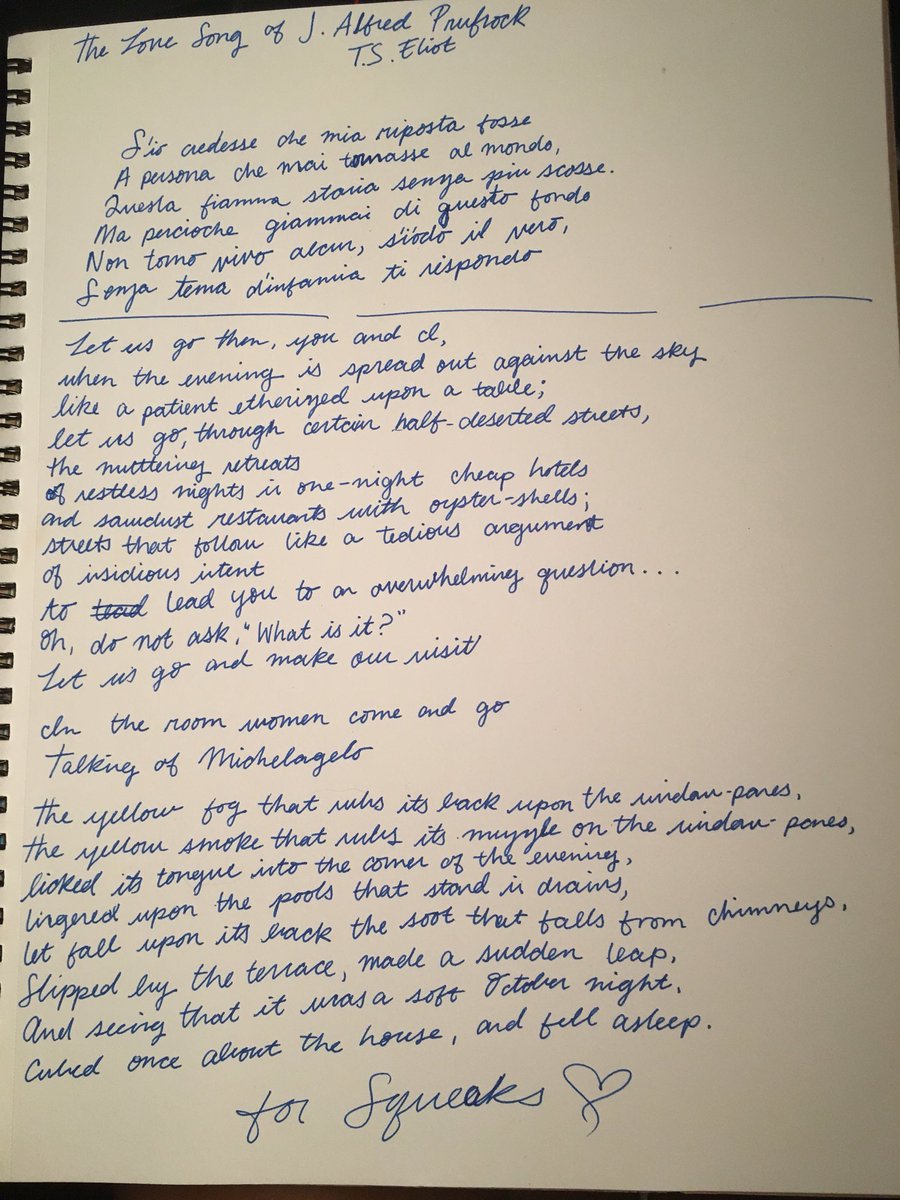 The Love Song of J. Alfred Prufrock
T.S. Eliot
S'io credesse che mia riposta fosse
A persona che mai tornasse al mondo,
Questa fiamma staria senza piu scosse.
Ma percioche giammai di questo fondo
Non torno vivo alcun, s'i'odo il vero,
Senza tema d'infamia ti rispondo
Let us go then, you and I,
when the evening is spread out against the sky
like a patient etherized upon a table;
let us go, through certain half-deserted streets,
the muttering retreats
of restless nights in one-night cheap hotels
and sawdust restaurants with oyster-shells;
streets that follow like a tedious argument
of insidious intent
to lead you to an overwhelming question...
Oh, do not ask, "What is it?"
Let us go and make our visit
In the room women come and go
Talking of Michelagelo
The yellow fog that rubs its back upon the window-panes,
the yellow smoke that rubs its muzzle on the window-panes,
licked its tongue into the corner of the evening,
lingered upon the pools that stand in drains,
let fall upon its back the soot that falls from chimneys,
Slipped by the terrace, made a sudden leap,
And seeing that it was a soft October night,
Curled once about the house, and fell asleep.
for Squeaks